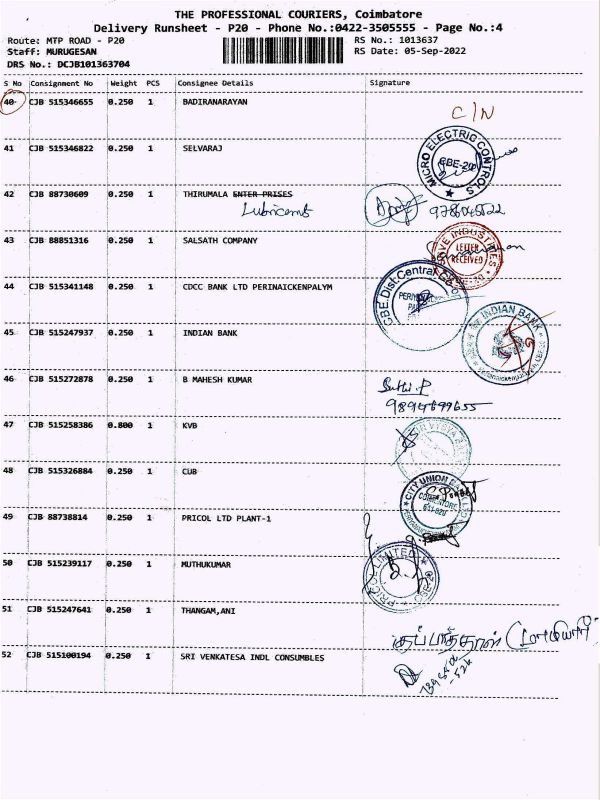 THE PROFESSIONAL COURIERS, Coimbatore
Delivery Runsheet - P20 - Phone No.:0422-3505555 - Page No.:4
Route: MTP ROAD - P20 RS No.: 1013637
Staff: MURUGESAN RS Date: 05-Sep-2022
DRS No.: DCJB101363704
S No Consignment No Weight PCS Consignee Details Signature
40 CJB 515346655 0.250 1 BADIRANARAYAN C/N
41 CJB 515346822 0.250 1 SELVARAJ
MICRO ELECTRIC CONTROLS CBE-20
42 CJB 88730609 0.250 1 THIRUMALA ENTER PRISES
Lubricants
43 CJB 88851316 0.250 1 SALSATH COMPANY
INDUSTRIES LETTER RECEIVED
44 CJB 515341148 0.250 1 CDCC BANK LTD PERINAICKENPALYM
CBE.Dist.Central
45 CJB 515247937 0.250 1 INDIAN BANK
INDIAN BANK
46 CJB 515272878 0.250 1 B MAHESH KUMAR
9894699655
47 CJB 515258386 0.800 1 KVB
VYSYA
48 CJB 515326884 0.250 1 CUB
CITY UNION BANK
49 CJB 88738814 0.250 1 PRICOL LTD PLANT-1
PRICOL LIMITED
50 CJB 515239117 0.250 1 MUTHUKUMAR
51 CJB 515247641 0.250 1 THANGAM,ANI
52 CJB 515100194 0.250 1 SRI VENKATESA INDL CONSUMBLES